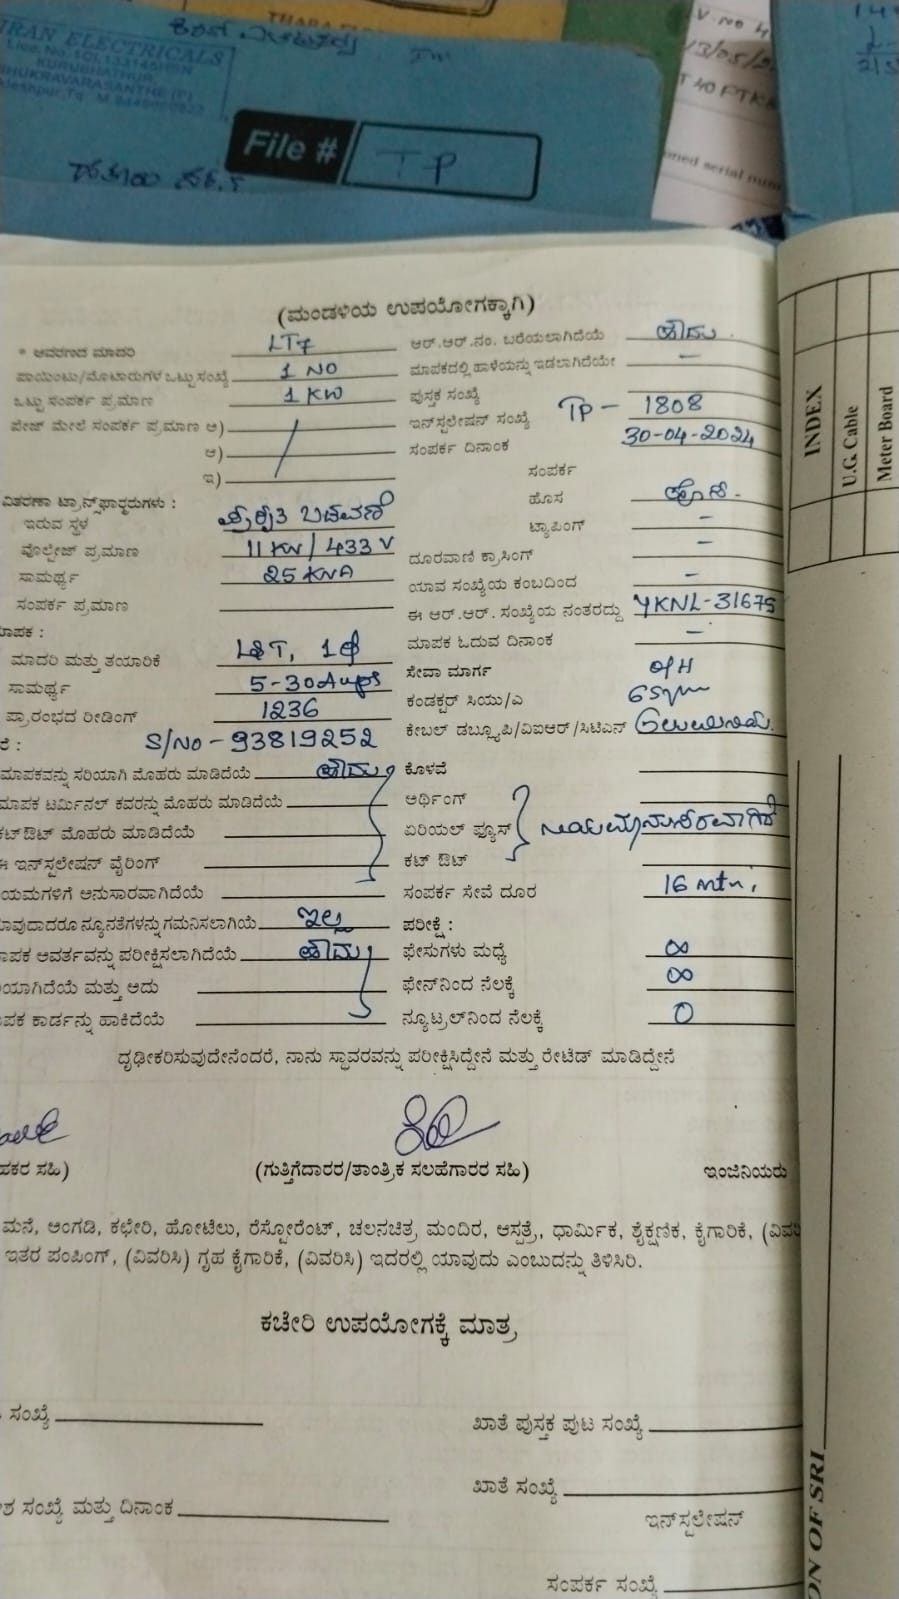 IRAN ELECTRICALS
KURUBHATHUR,
HUKRAVARASANTHE (P)
File # TP
V. NO 4
13/05/2
T 40 PTK
oned serial num
(ಮಂಡಳಿಯ ಉಪಯೋಗಕ್ಕಾಗಿ)
* ಆವರಣದ ಮಾದರಿ LT7
ಆರ್.ಆರ್.ನಂ. ಬರೆಯಲಾಗಿದೆಯೆ ಹೌದು
ಪಾಯಿಂಟು/ಮೋಟಾರುಗಳ ಒಟ್ಟು ಸಂಖ್ಯೆ 1 NO
ಮಾಪಕದಲ್ಲಿ ಹಾಳೆಯನ್ನು ಇಡಲಾಗಿದೆಯೇ –
ಒಟ್ಟು ಸಂಪರ್ಕ ಪ್ರಮಾಣ 1 KW
ಪುಸ್ತಕ ಸಂಖ್ಯೆ
ಪೇಜ್ ಮೇಲೆ ಸಂಪರ್ಕ ಪ್ರಮಾಣ ಅ)
ಇನ್‌ಸ್ಟಲೇಷನ್ ಸಂಖ್ಯೆ TP – 1808
ಆ)
ಸಂಪರ್ಕ ದಿನಾಂಕ 30-04-2024
ಇ)
ಸಂಪರ್ಕ
ವಿತರಣಾ ಟ್ರಾನ್ಸ್‌ಫಾರ್ಮರುಗಳು :
ಹೊಸ ಹೊಸ.
ಇರುವ ಸ್ಥಳ ಬಡಾವಣೆ
ಟ್ಯಾಪಿಂಗ್ –
ವೋಲ್ಟೇಜ್ ಪ್ರಮಾಣ 11 KV / 433 V
ದೂರವಾಣಿ ಕ್ರಾಸಿಂಗ್ –
ಸಾಮರ್ಥ್ಯ 25 KVA
ಯಾವ ಸಂಖ್ಯೆಯ ಕಂಬದಿಂದ –
ಸಂಪರ್ಕ ಪ್ರಮಾಣ
ಈ ಆರ್.ಆರ್. ಸಂಖ್ಯೆಯ ನಂತರದ್ದು YKNL-31675
ಮಾಪಕ :
ಮಾಪಕ ಓದುವ ದಿನಾಂಕ –
ಮಾದರಿ ಮತ್ತು ತಯಾರಿಕೆ L&T, 1φ
ಸೇವಾ ಮಾರ್ಗ O/H
ಸಾಮರ್ಥ್ಯ 5-30 Amps
ಕಂಡಕ್ಟರ್ ಸಿಯು/ಎ 6 Sqmm
ಪ್ರಾರಂಭದ ರೀಡಿಂಗ್ 1236
ಕೇಬಲ್ ಡಬ್ಲ್ಯೂಪಿ/ವಿಐಆರ್/ಸಿಟಿಎನ್
ರೆ : S/NO - 93819252
ಮಾಪಕವನ್ನು ಸರಿಯಾಗಿ ಮೊಹರು ಮಾಡಿದೆಯೆ ಹೌದು
ಕೊಳವೆ
ಮಾಪಕ ಟರ್ಮಿನಲ್ ಕವರನ್ನು ಮೊಹರು ಮಾಡಿದೆಯೆ
ಅರ್ಥಿಂಗ್
ಕಟ್‌ಔಟ್ ಮೊಹರು ಮಾಡಿದೆಯೆ
ಏರಿಯಲ್ ಫ್ಯೂಸ್ ನಿಯಮಾನುಸಾರವಾಗಿದೆ
ಈ ಇನ್‌ಸ್ಟಲೇಷನ್ ವೈರಿಂಗ್
ಕಟ್ ಔಟ್
ಯಮಗಳಿಗೆ ಅನುಸಾರವಾಗಿದೆಯೆ
ಸಂಪರ್ಕ ಸೇವೆ ದೂರ 16 mtr.
ಾವುದಾದರೂ ನ್ಯೂನತೆಗಳನ್ನು ಗಮನಿಸಲಾಗಿಯೆ ಇಲ್ಲ
ಪರೀಕ್ಷೆ :
ಾಪಕ ಆವರ್ತವನ್ನು ಪರೀಕ್ಷಿಸಲಾಗಿದೆಯೆ ಹೌದು
ಫೇಸುಗಳು ಮಧ್ಯೆ ∞
ಿಯಾಗಿದೆಯೆ ಮತ್ತು ಅದು
ಫೇಸ್‌ನಿಂದ ನೆಲಕ್ಕೆ ∞
ಾಪಕ ಕಾರ್ಡನ್ನು ಹಾಕಿದೆಯೆ
ನ್ಯೂಟ್ರಲ್‌ನಿಂದ ನೆಲಕ್ಕೆ 0
ದೃಢೀಕರಿಸುವುದೇನೆಂದರೆ, ನಾನು ಸ್ಥಾವರವನ್ನು ಪರೀಕ್ಷಿಸಿದ್ದೇನೆ ಮತ್ತು ರೇಟೆಡ್ ಮಾಡಿದ್ದೇನೆ
ಹಕರ ಸಹಿ) (ಗುತ್ತಿಗೆದಾರರ/ತಾಂತ್ರಿಕ ಸಲಹೆಗಾರರ ಸಹಿ) ಇಂಜಿನಿಯರು
ಮನೆ, ಅಂಗಡಿ, ಕಛೇರಿ, ಹೋಟೆಲು, ರೆಸ್ಟೋರೆಂಟ್, ಚಲನಚಿತ್ರ ಮಂದಿರ, ಆಸ್ಪತ್ರೆ, ಧಾರ್ಮಿಕ, ಶೈಕ್ಷಣಿಕ, ಕೈಗಾರಿಕೆ, (ವಿವರಿ
ಇತರ ಪಂಪಿಂಗ್, (ವಿವರಿಸಿ) ಗೃಹ ಕೈಗಾರಿಕೆ, (ವಿವರಿಸಿ) ಇದರಲ್ಲಿ ಯಾವುದು ಎಂಬುದನ್ನು ತಿಳಿಸಿರಿ.
ಕಚೇರಿ ಉಪಯೋಗಕ್ಕೆ ಮಾತ್ರ
ಸಂಖ್ಯೆ
ಖಾತೆ ಪುಸ್ತಕ ಪುಟ ಸಂಖ್ಯೆ
ಖಾತೆ ಸಂಖ್ಯೆ
ಶ ಸಂಖ್ಯೆ ಮತ್ತು ದಿನಾಂಕ
ಇನ್‌ಸ್ಟಲೇಷನ್
ಸಂಪರ್ಕ ಸಂಖ್ಯೆ
INDEX
U.G. Cable
Meter Board
ON OF SRI